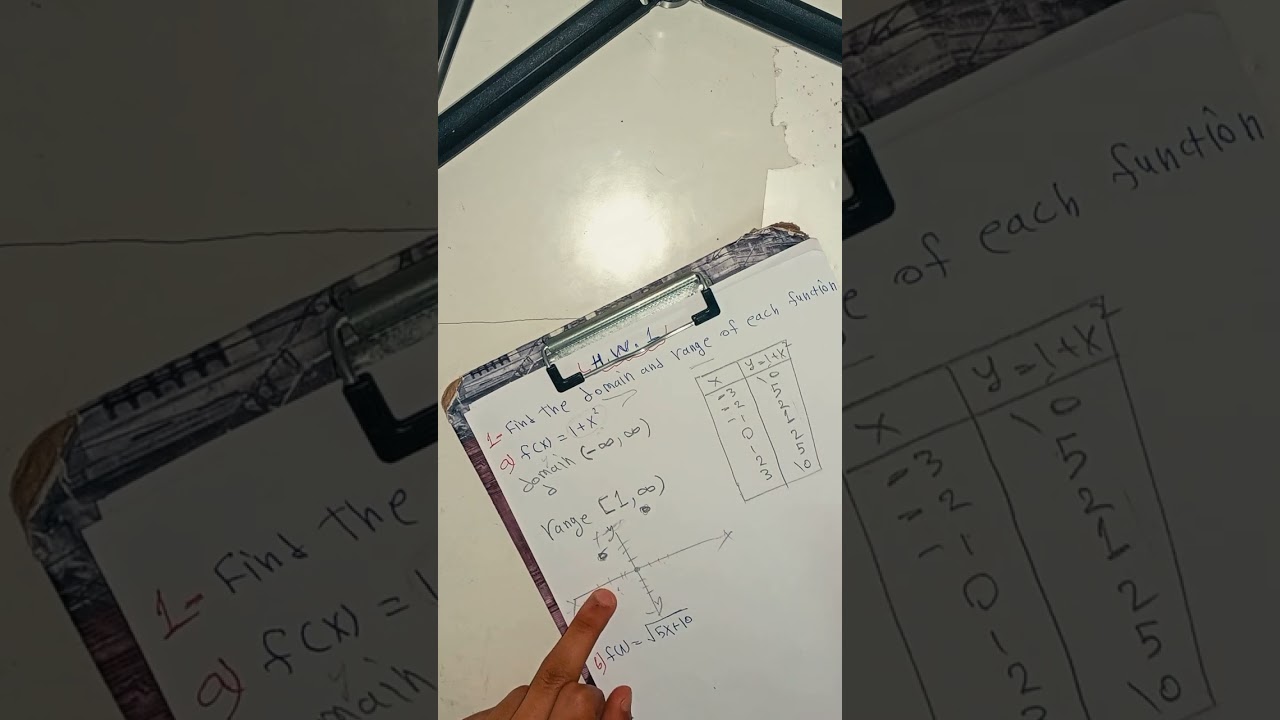 H.W. 1
1- Find the domain and range of each function
a) f(x) = 1+x²
domain (-∞, ∞)
range [1, ∞)
x y = 1+x²
-3 10
-2 5
-1 2
0 1
1 2
2 5
3 10
y
x
b) f(x) = √5x+10